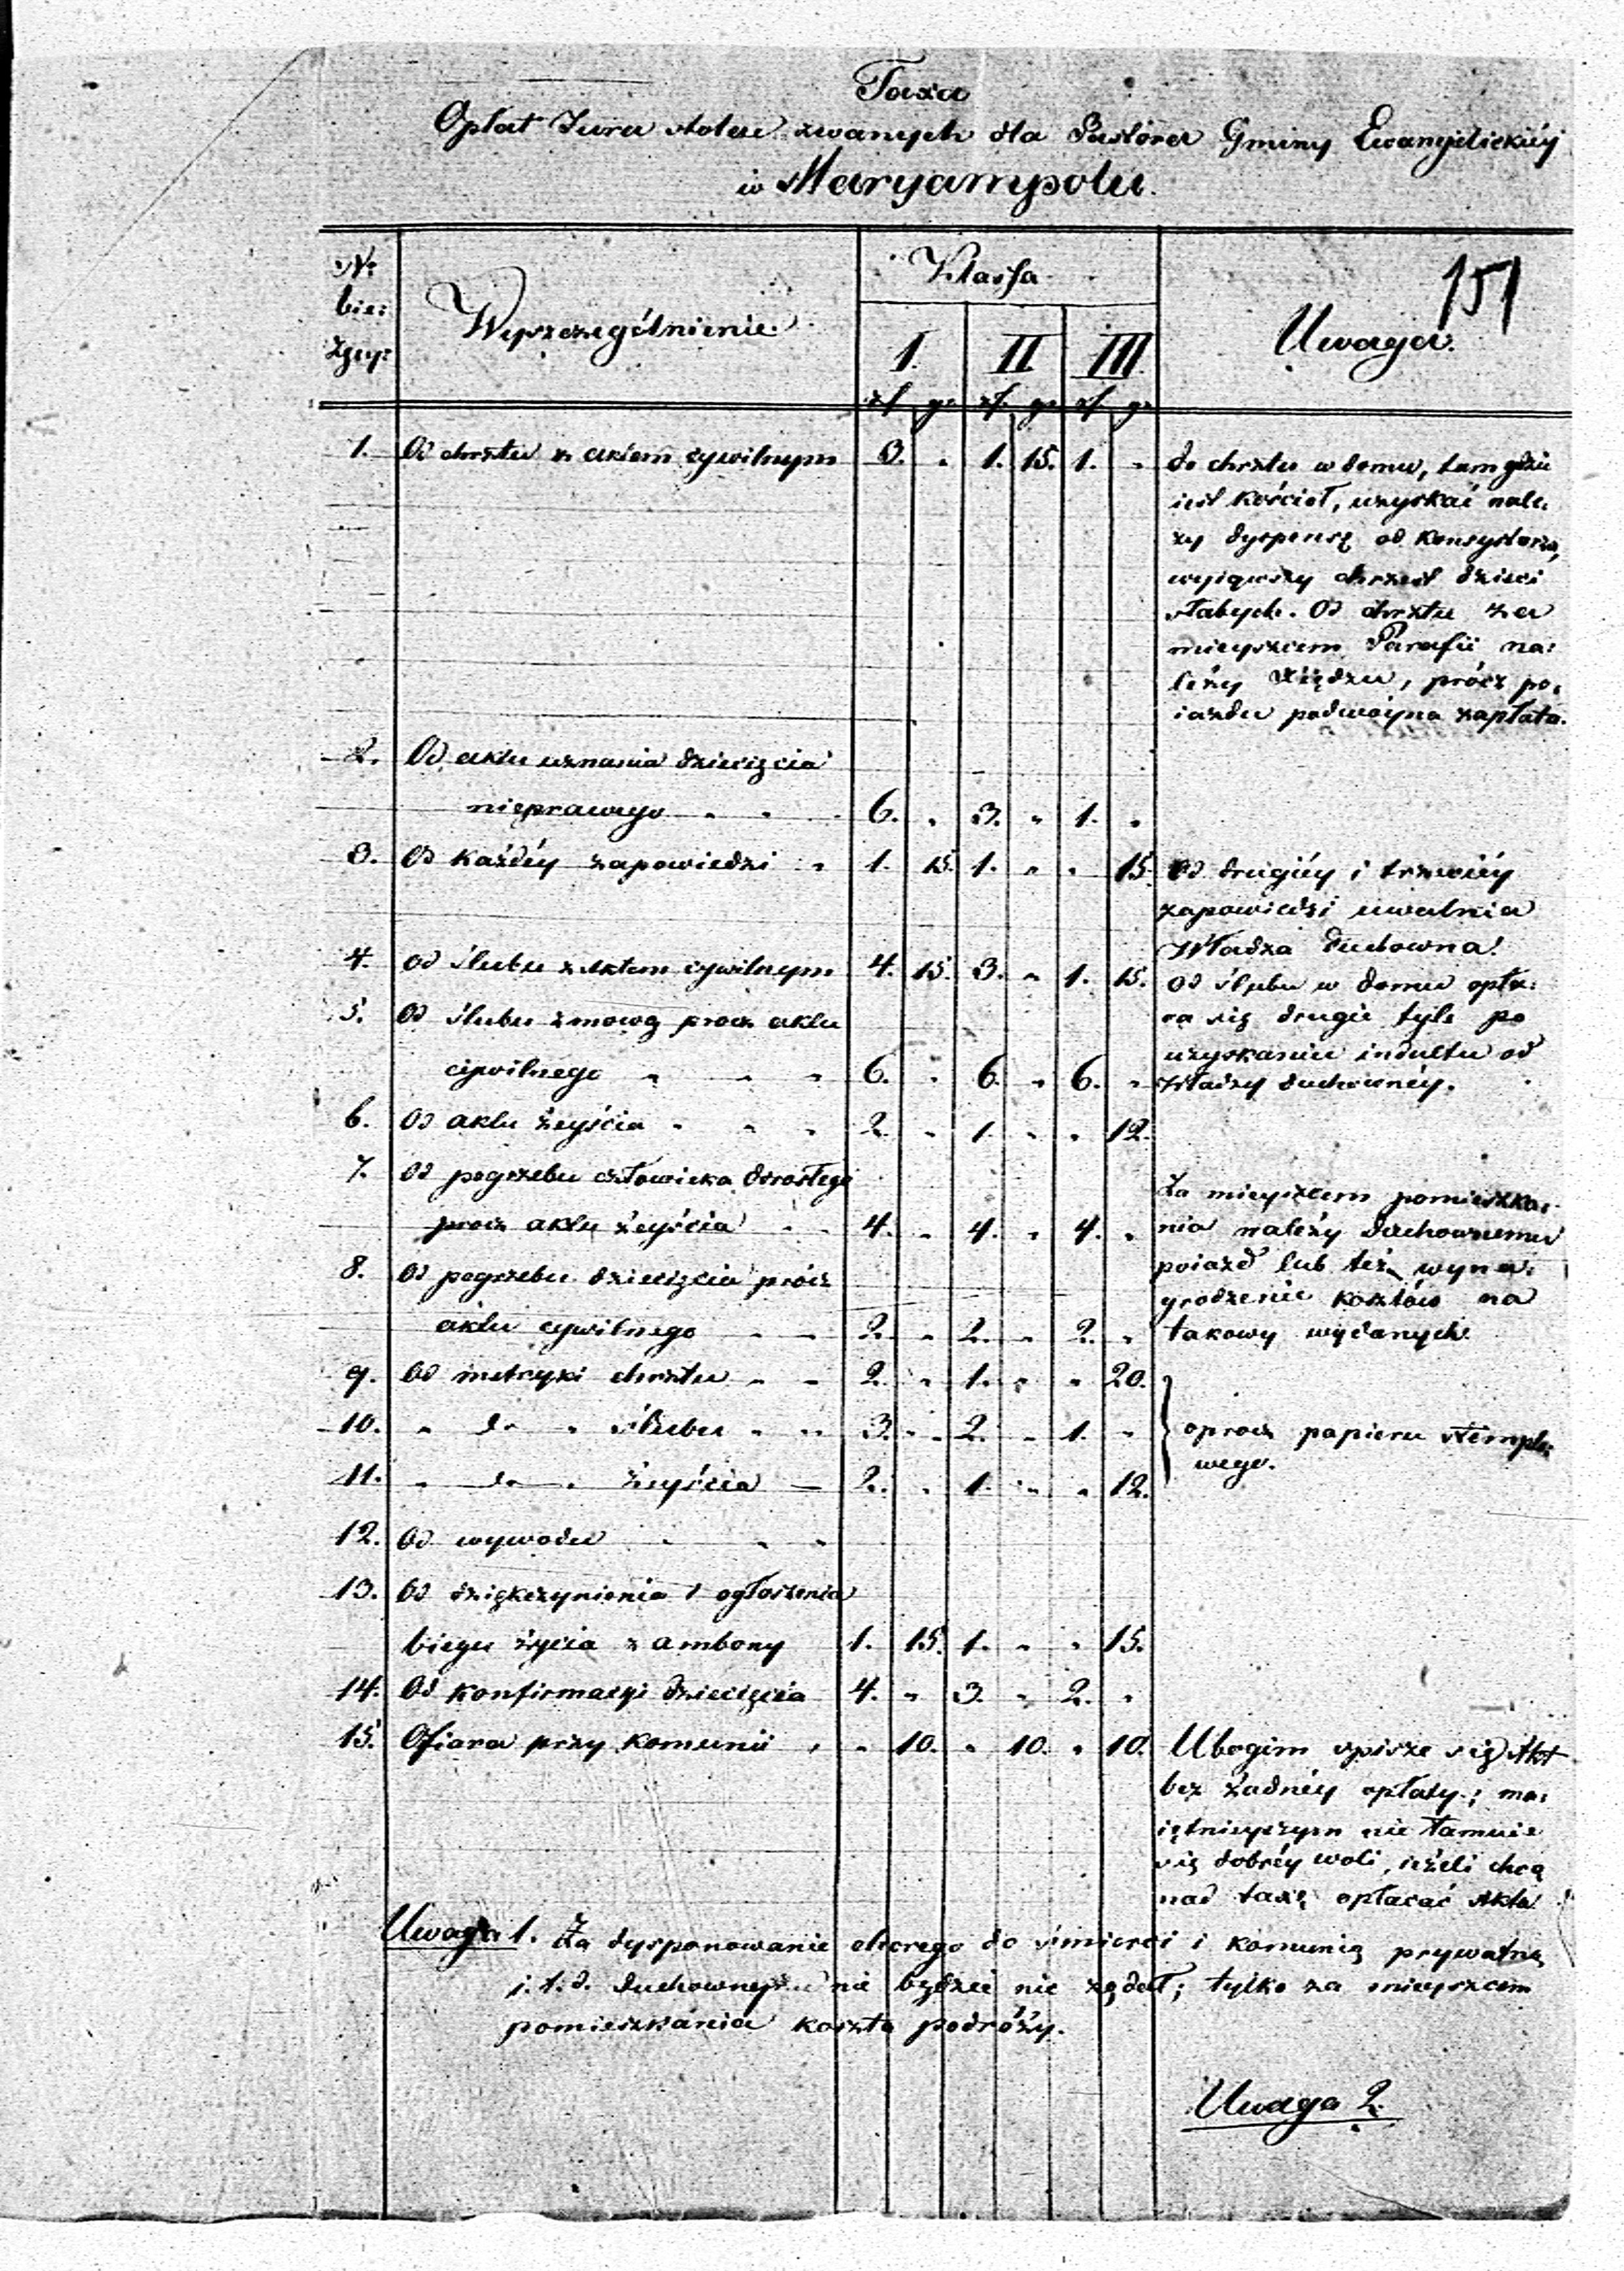 Taxa
Opłat Jura stolae zwanych dla Pastora Gminy Ewangelickiéy
w Maryampolu.
151
Nr
bie:
żący:
Wyszczególnienie.
Klassa
Uwaga.
I. II III
zł gr zł. gr zł gr
1. Od chrztu z aktem cywilnym 3. „ 1. 15. 1. „
do chrztu w domu, tam gdzie
iest kościoł, uzyskać nale:
ży dyspensę od Konsystorza,
wyiąwszy chrzest dzieci
słabych. Od chrztu za
mieyscem Parafii na:
leży Xiędzu, prócz po:
iazdu podwóyna zapłata.
2. Od aktu uznania dziecięcia
nieprawego „ „ 6. „ 3. „ 1. „
3. Od każdéy zapowiedzi „ 1. 15. 1. „ „ 15.
Od drugiéy i trzeciéy
zapowiedzi uwalnia
Władza duchowna.
4. Od ślubu z aktem cywilnym 4. 15. 3. „ 1. 15.
Od ślubu w domu opła:
ca się drugie tyle po
uzyskaniu indultu od
władzy duchownéy.
5. Od ślubu z mową procz aktu
cywilnego „ „ „ 6. „ 6. „ 6. „
6. Od aktu zeyścia „ „ „ 2. „ 1. „ „ 12.
7. Od pogrzebu człowieka dorosłego
procz aktu zeyścia „ „ 4. „ 4. „ 4. „
Za mieyscem pomieszka:
nia należy duchownemu
poiazd lub też wyna:
grodzenie kosztów na
takowy wydanych.
8. Od pogrzebu dziecięcia prócz
aktu cywilnego „ „ 2. „ 2. „ 2. „
9. Od metryki chrztu „ „ 2. „ 1. „ „ 20.
10. „ do „ ślubu „ „ 3. „ 2. „ 1. „
11. „ do „ zeyścia „ 2. „ 1. „ „ 12.
oprocz papieru stemplo:
wego.
12. Od wywodu „ „ „
13. Od dziękczynienia i ogłoszenia
biegu życia z ambony 1. 15. 1. „ „ 15.
14. Od konfirmacyi dziecięcia 4. „ 3. „ 2. „
15. Ofiara przy komunii „ „ 10. „ 10. „ 10.
Ubogim spisze się Akt
bez żadnéy opłaty; ma:
iętnieyszym nie tamuie
się dobréy woli, ieżeli chcą
nad taxę opłacać Akta
Uwaga 1. Za dysponowanie chorego do śmierci i komunią prywatną
i. t. d. duchowny nie będzie nic żądał; tylko za mieyscem
pomieszkania koszta podróży.
Uwaga 2.